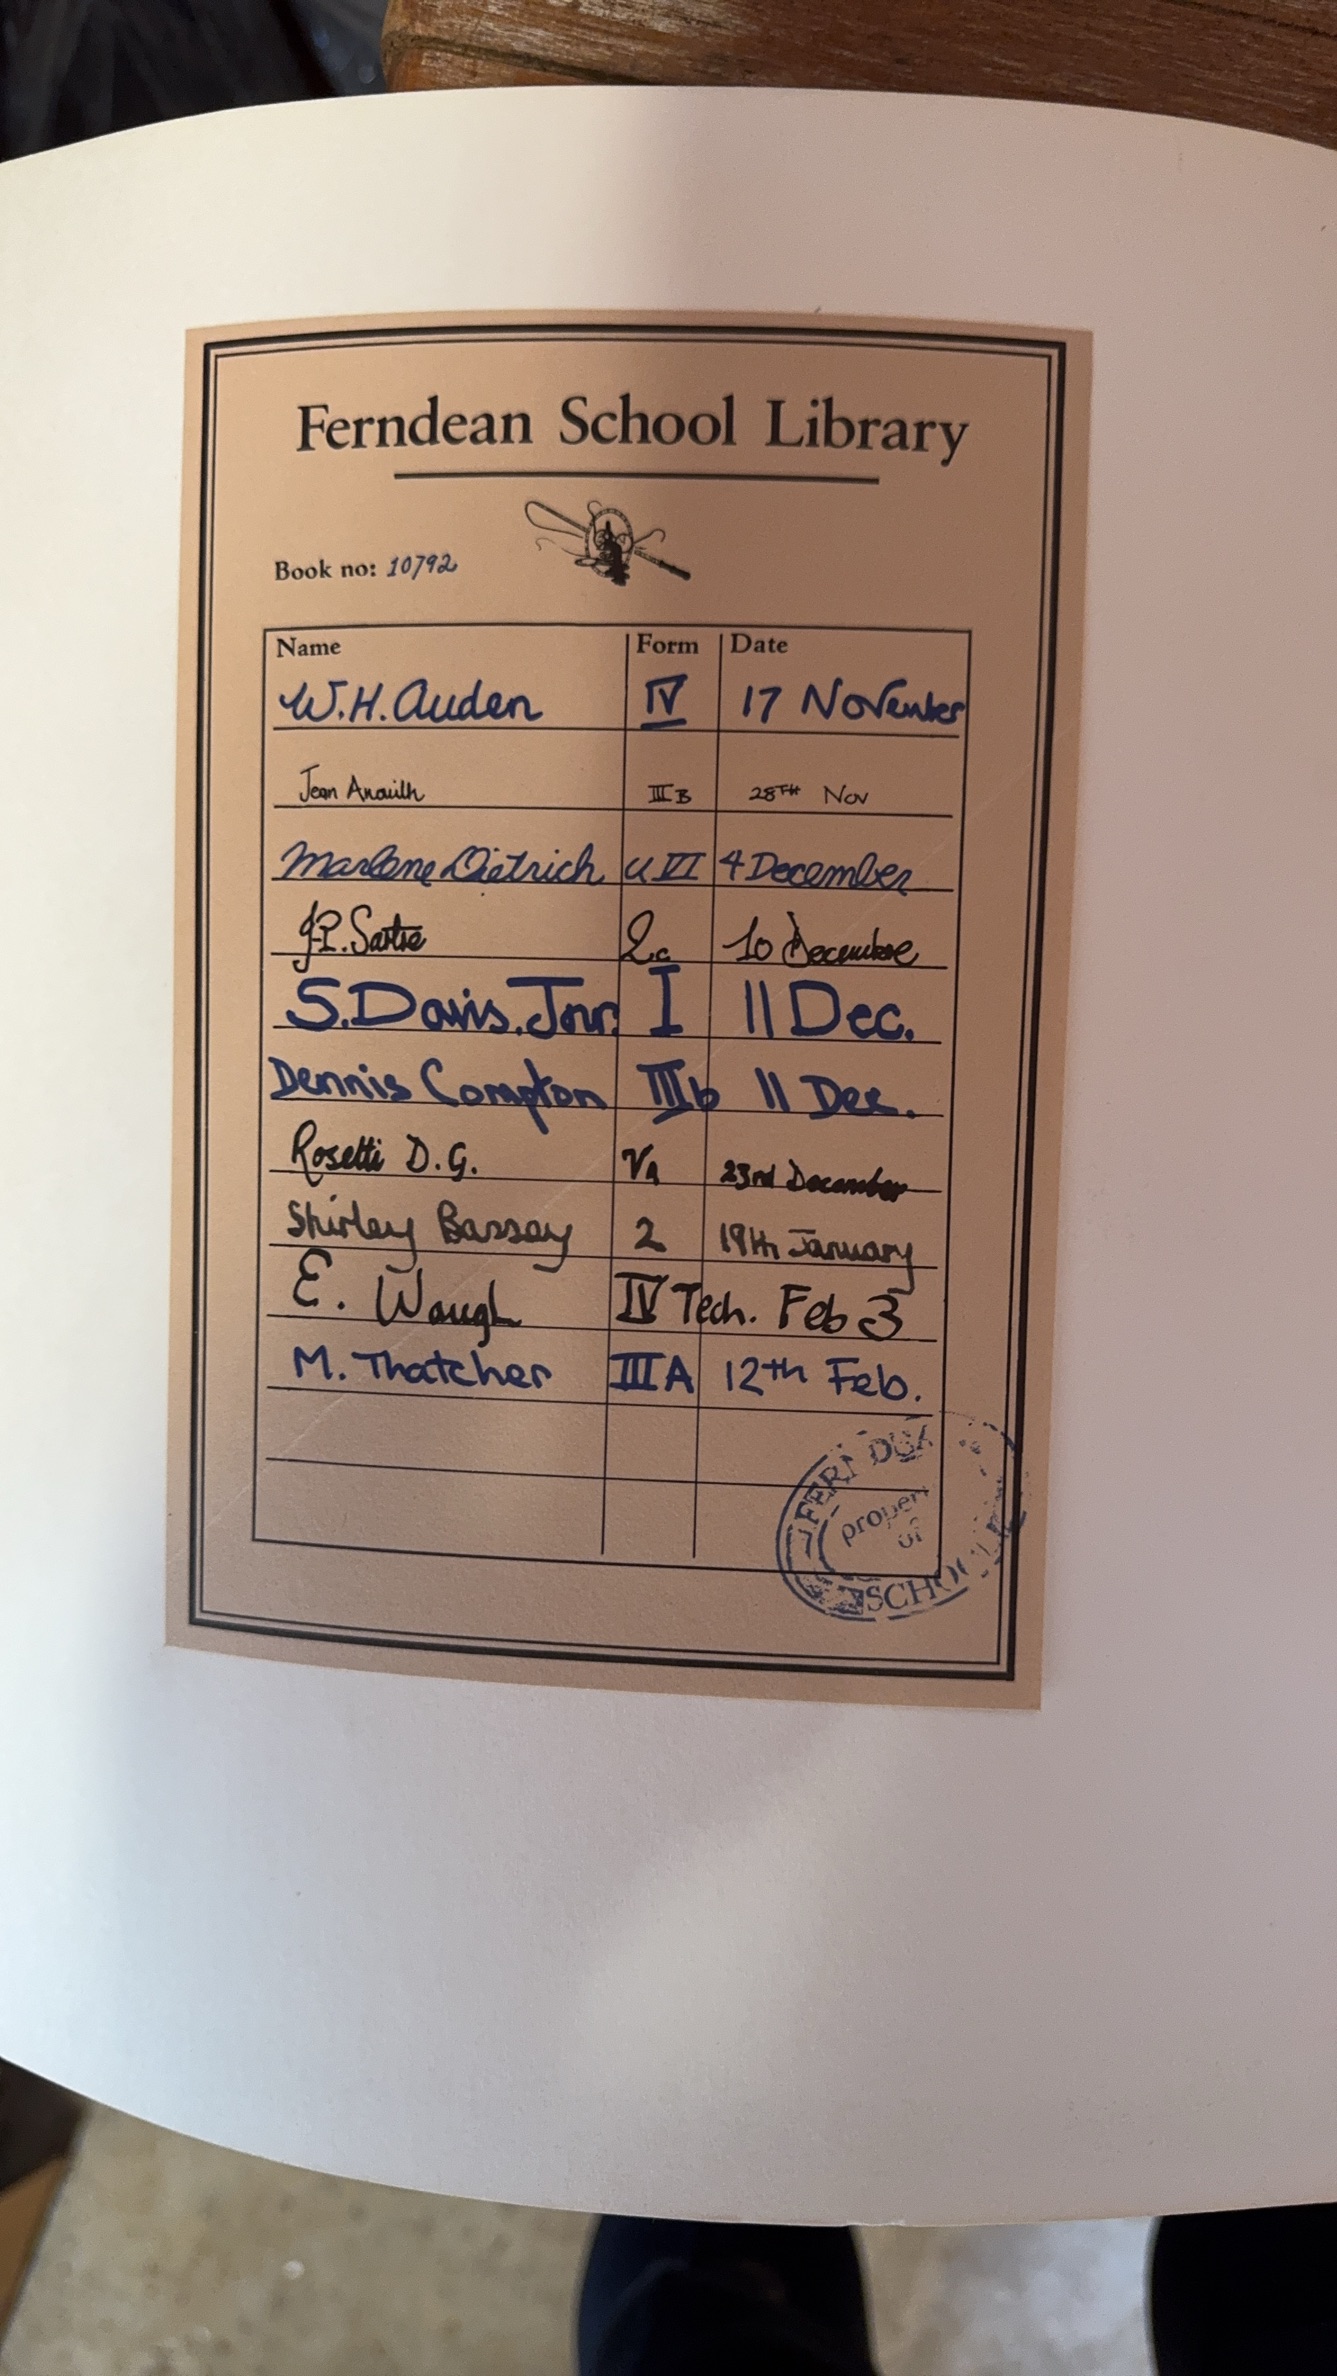 Ferndean School Library
Book no: 10792
Name Form Date
W.H. Auden IV 17 November
Jean Anouilh III B 28TH Nov
Marlene Dietrich U VI 4 December
J-P. Sartre 2c 10 Decembre
S. Davis. Jnr. I 11 Dec.
Dennis Compton IIIb 11 Dec.
Rosetti D.G. VA 23rd December
Shirley Bassey 2 19th January
E. Waugh IV Tech. Feb 3
M. Thatcher IIIA 12th Feb.
of